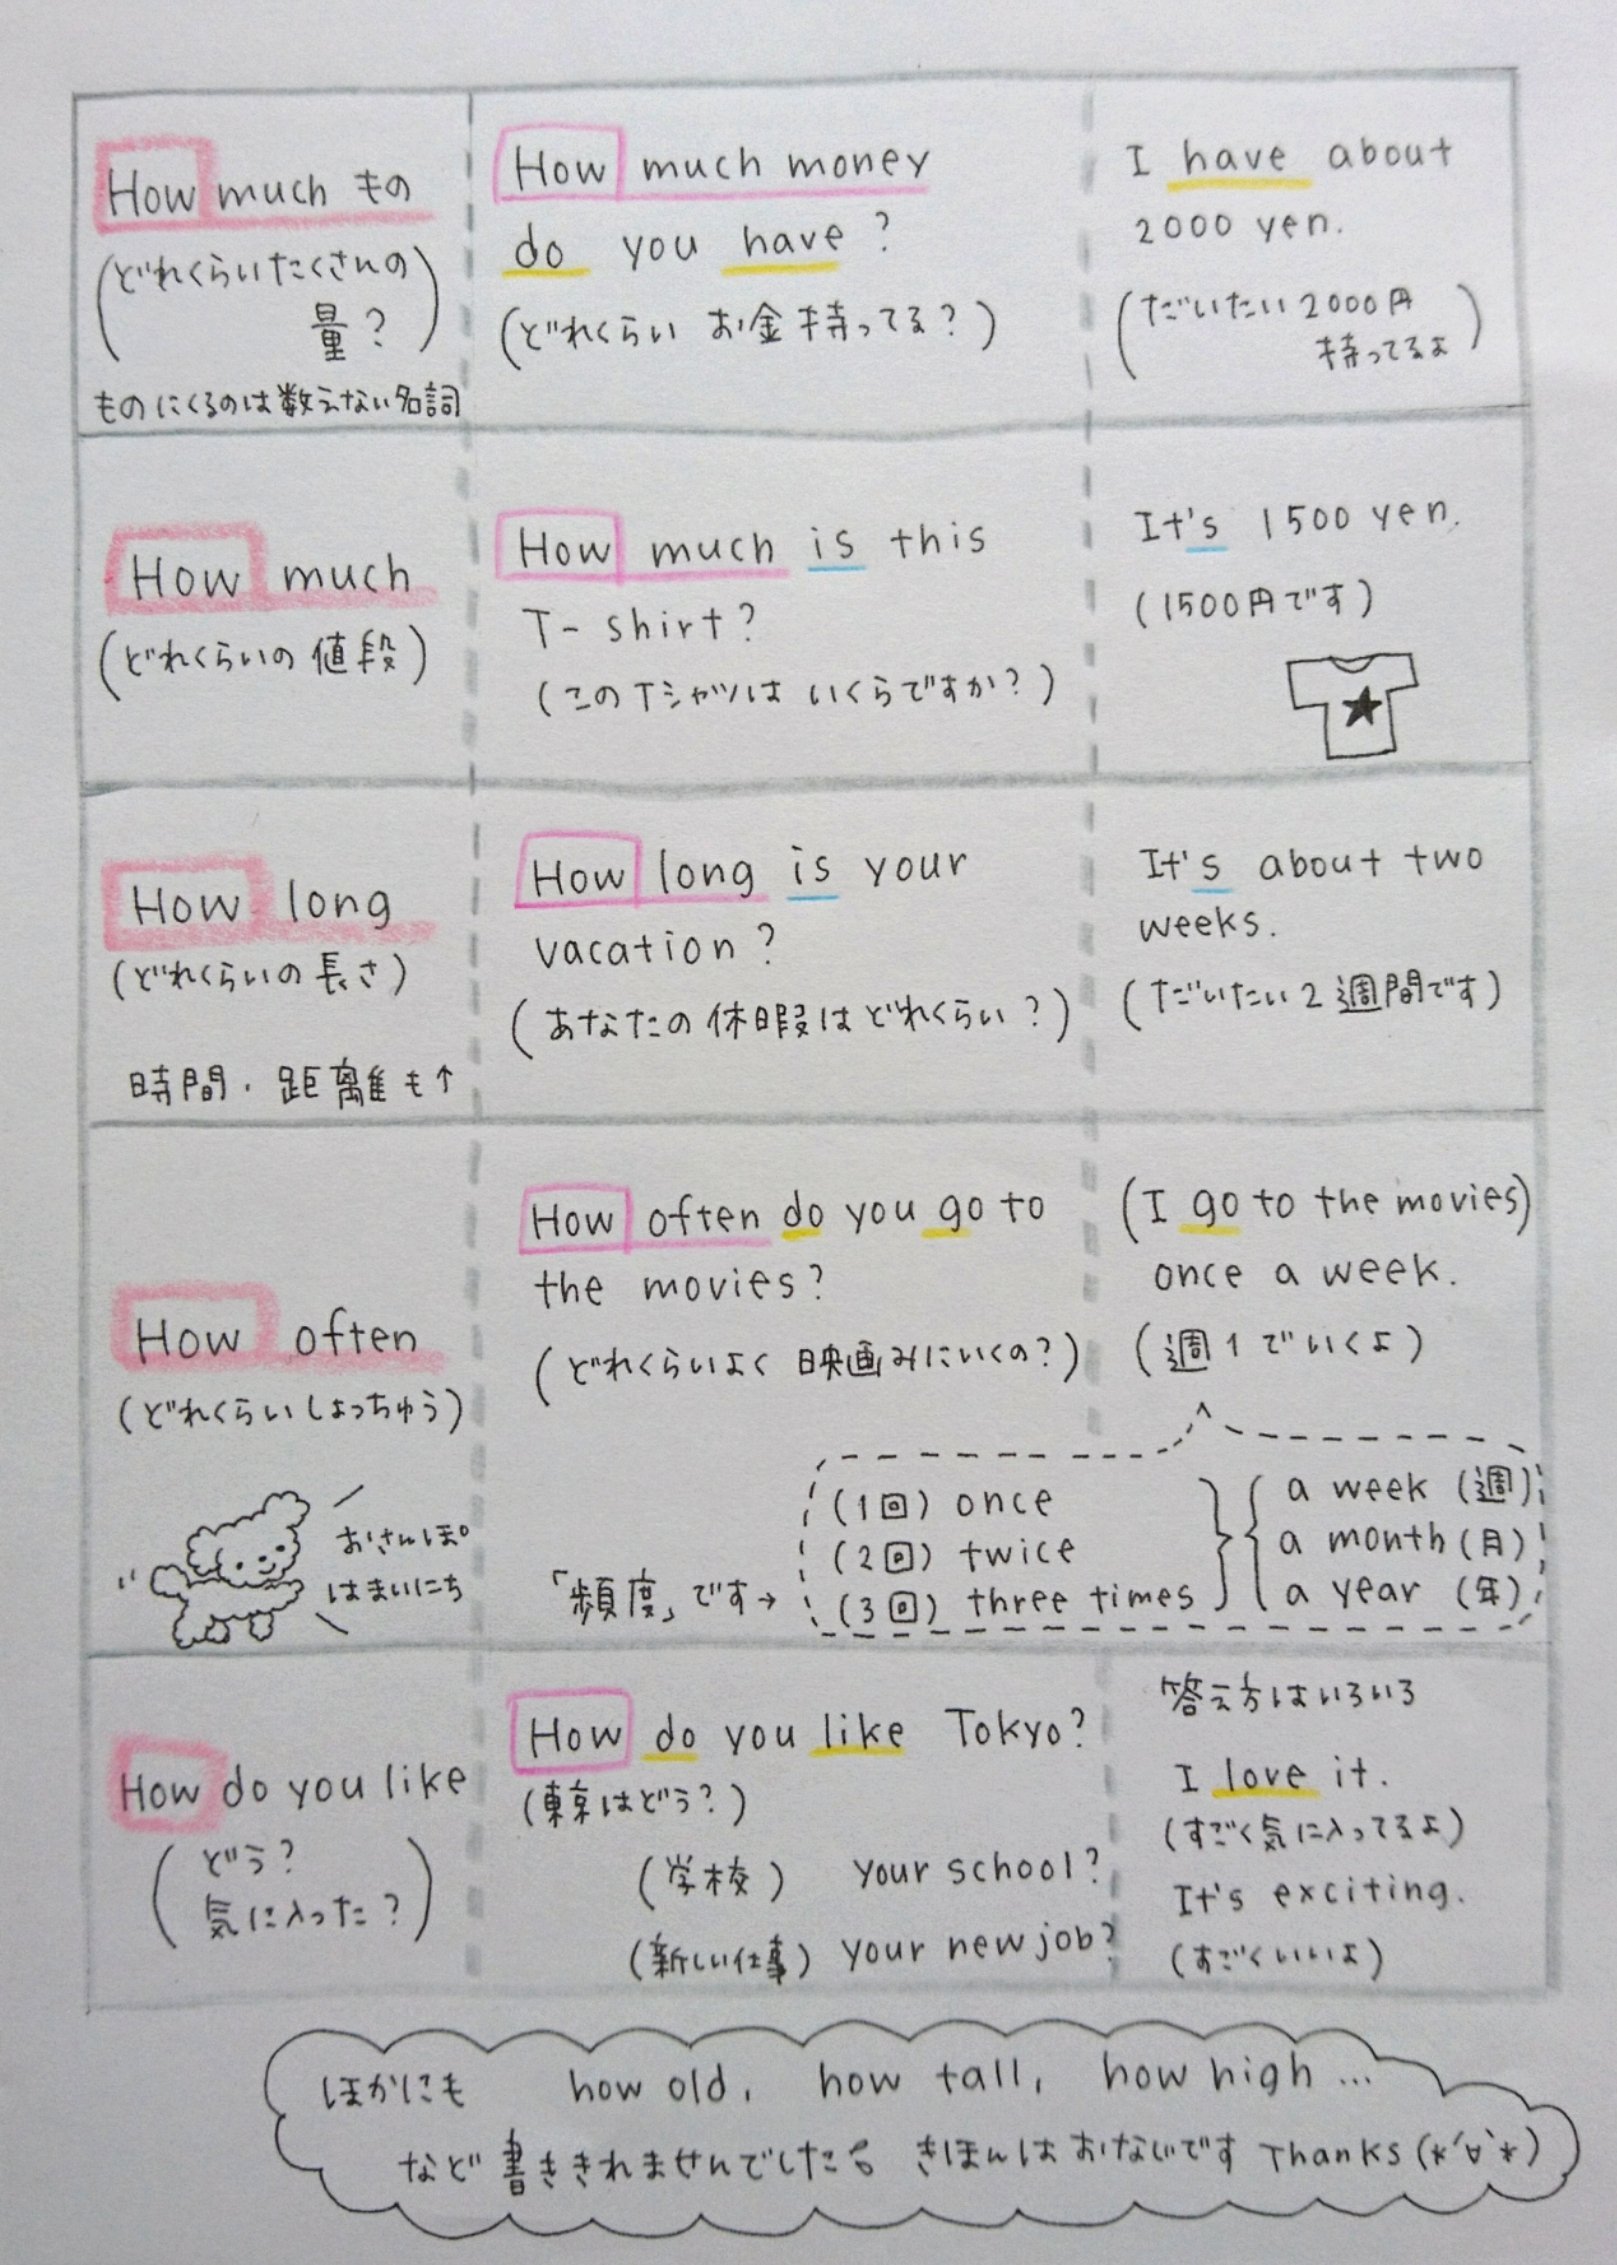 How much もの
(どれくらいたくさんの
量?)
ものにくるのは数えない名詞
How much money
do you have?
(どれくらい お金持ってる?)
I have about
2000 yen.
(だいたい2000円
持ってるよ)
How much
(どれくらいの値段)
How much is this
T-shirt?
(このTシャツは いくらですか?)
It's 1500 yen.
(1500円です)
How long
(どれくらいの長さ)
時間・距離も↑
How long is your
vacation?
(あなたの休暇はどれくらい?)
It's about two
weeks.
(だいたい2週間です)
How often
(どれくらいしょっちゅう)
おさんぽ
はまいにち
How often do you go to
the movies?
(どれくらいよく 映画みにいくの?)
(I go to the movies)
once a week.
(週1でいくよ)
「頻度」です→
(1回) once
(2回) twice
(3回) three times
a week (週)
a month (月)
a year (年)
How do you like
(どう?
気に入った?)
How do you like Tokyo?
(東京はどう?)
(学校) your school?
(新しい仕事) your new job?
答え方はいろいろ
I love it.
(すごく気に入ってるよ)
It's exciting.
(すごくいいよ)
ほかにも how old, how tall, how high...
など書ききれませんでした。きほんはおなじです Thanks (*´∀`*)